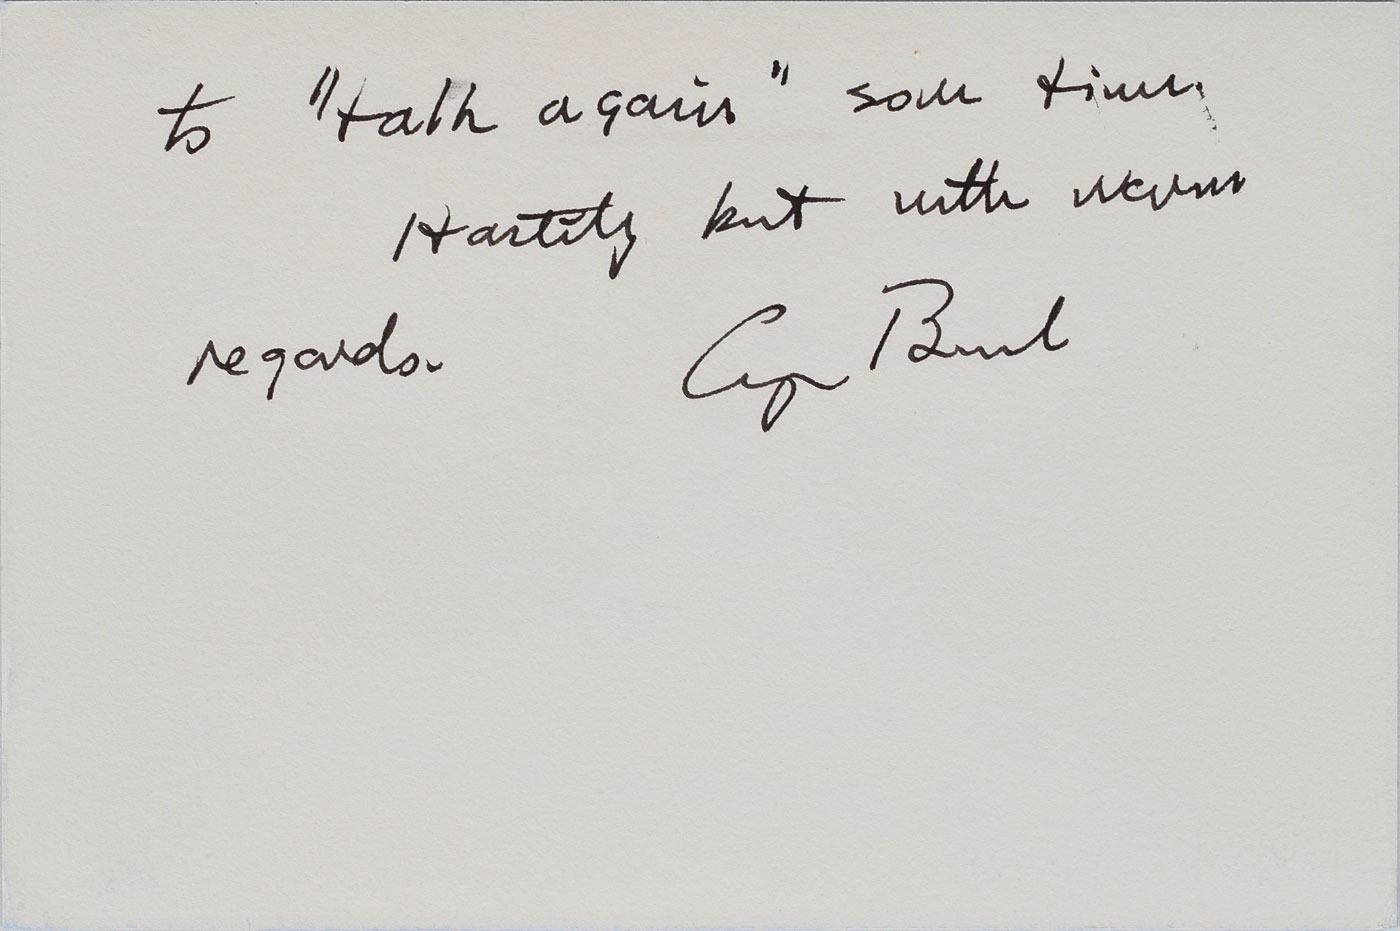 to "talk again" some time.
Hastily but with warm
regards.